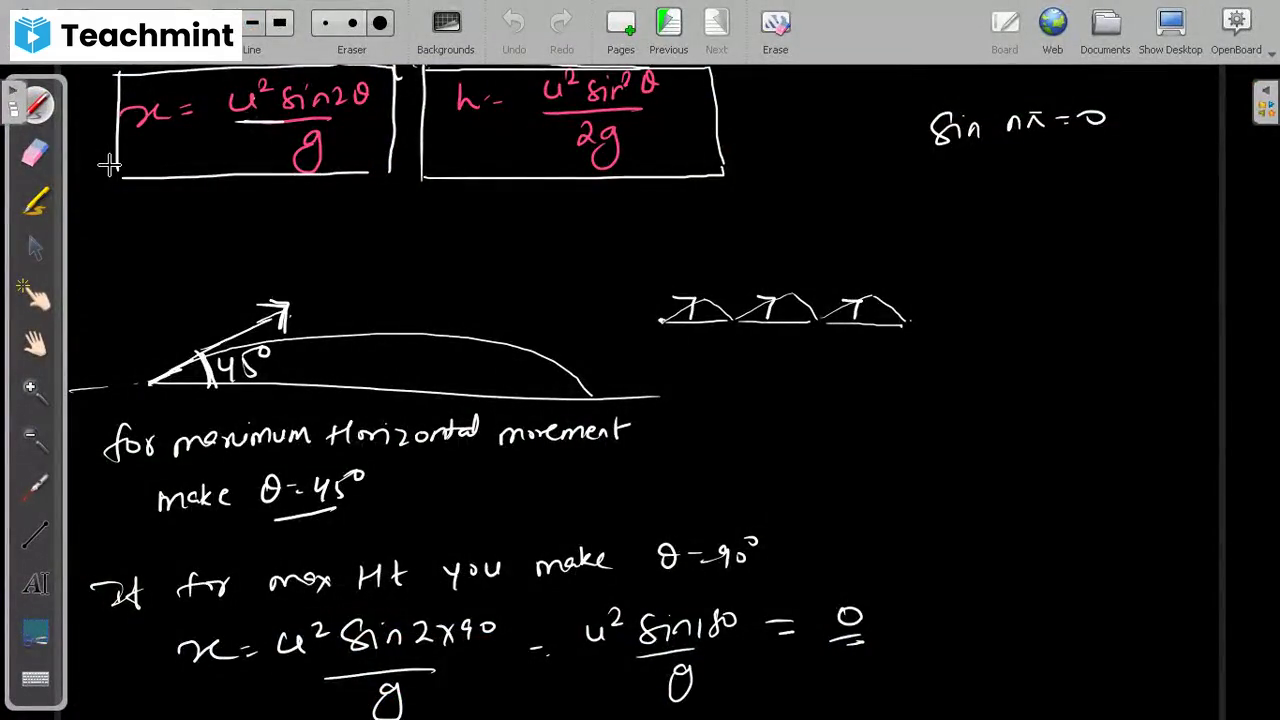 Teachmint
Line
Eraser
Backgrounds
Undo
Redo
Pages
Previous
Next
Erase
Board
Web
Documents
Show Desktop
OpenBoard
x = u² sin2θ / g
h = u² sin²θ / 2g
sin nπ = 0
45°
for maximum Horizontal movement
make θ = 45°
If for max Ht you make θ = 90°
x = u² sin 2×90 / g = u² sin180 / g = 0
AI